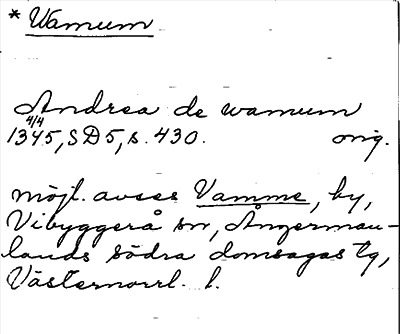 * Wamum
Andrea de wamum
4/4
1345, SD5, s. 430. orig.
möjl. avses Vamme, by,
Vibyggerå sn, Ångerman-
lands södra domsagas tg,
Västernorrl. l.